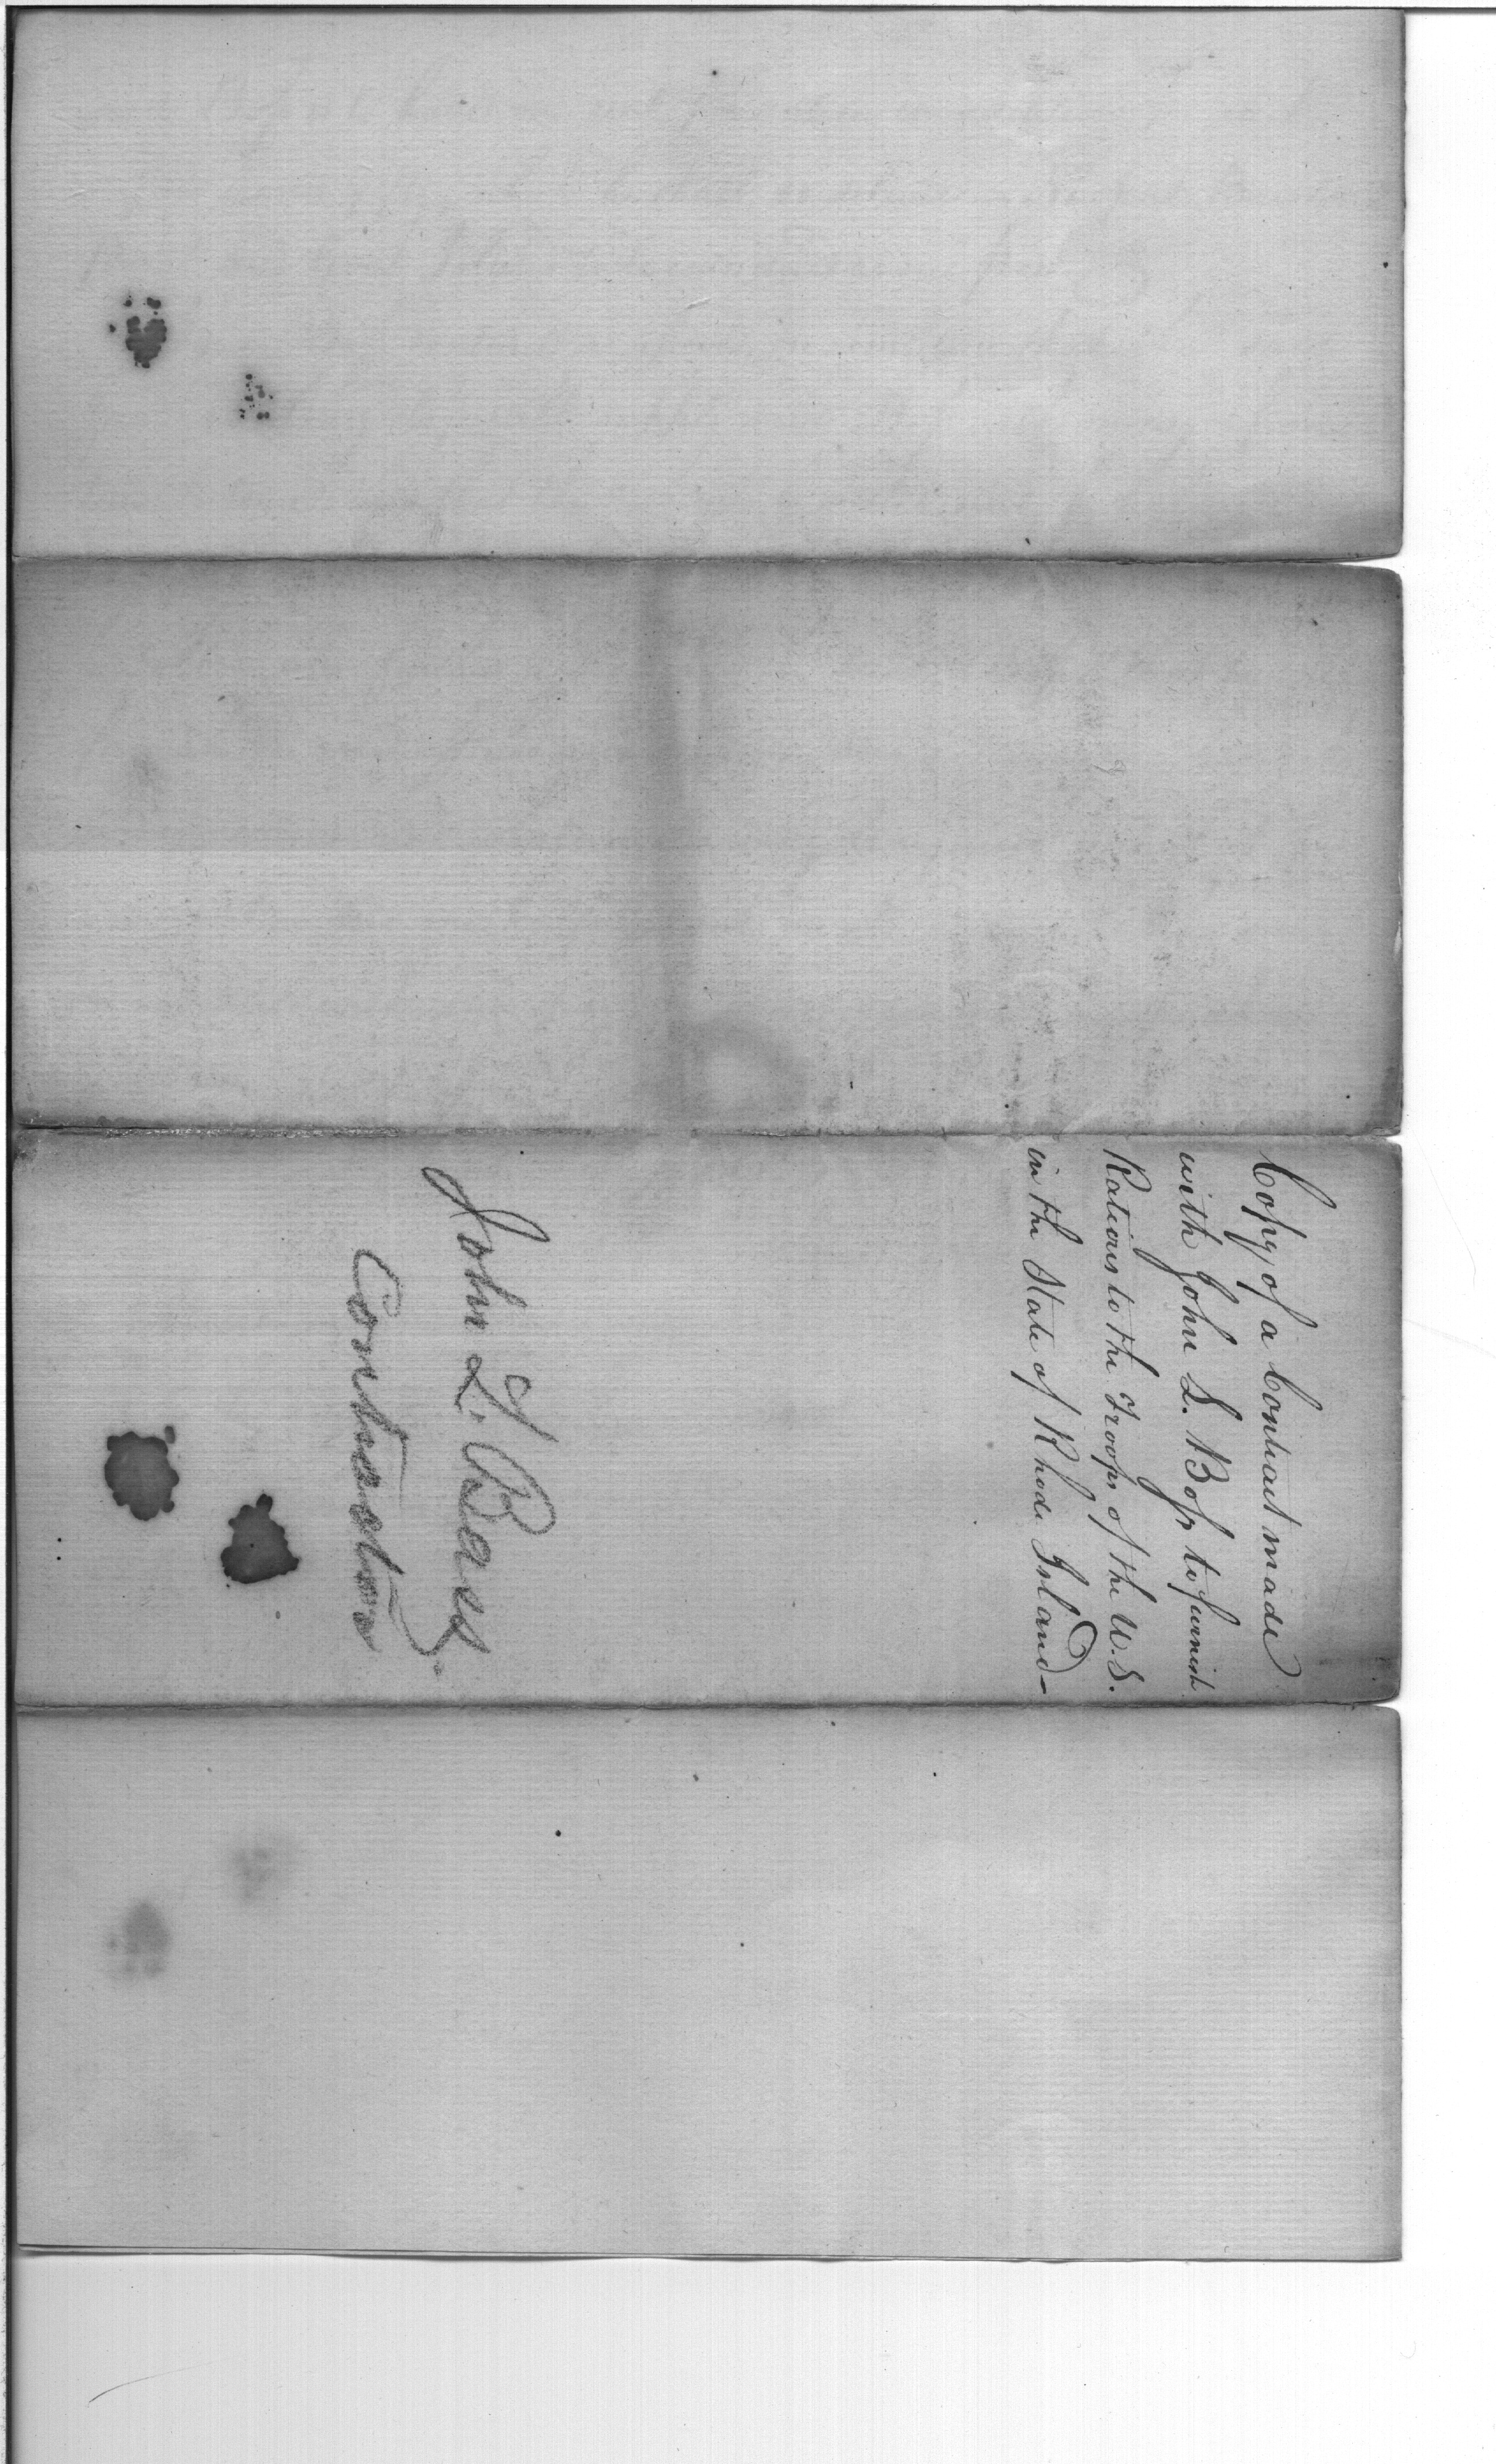 Copy of a Contract made
with John L. Boss to furnish
Rations to the Troops of the U.S.
in the State of Rhode Island-
John L.
Contractor